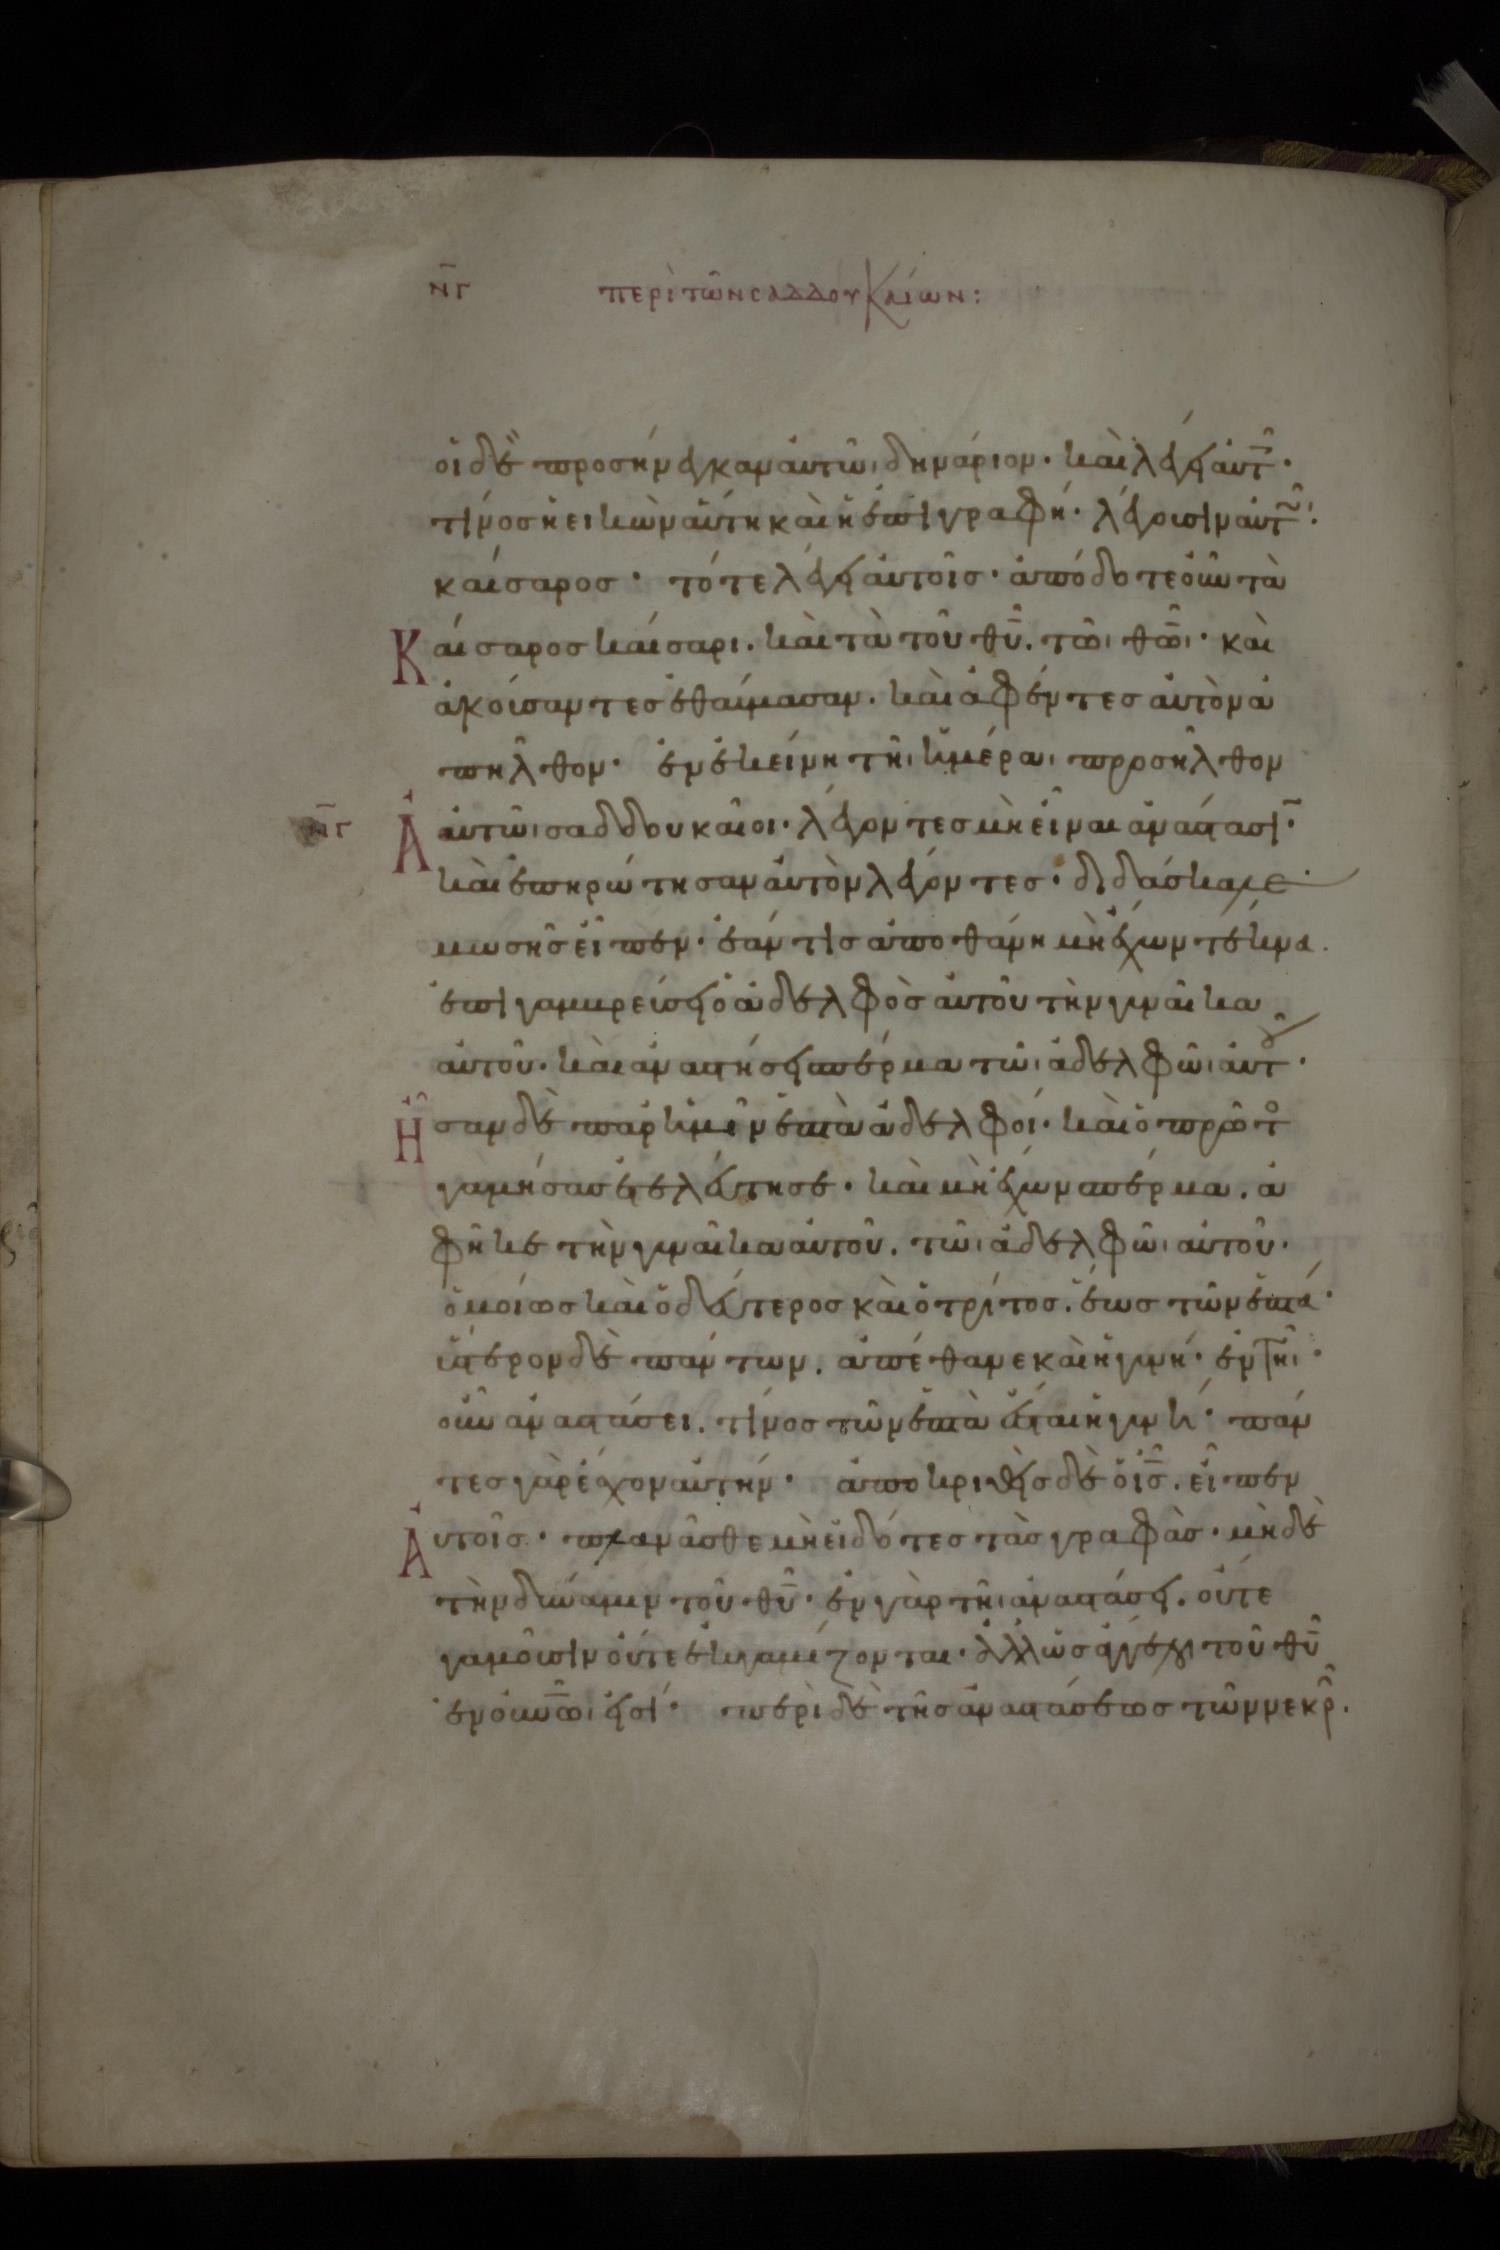 ν̄γ περὶ τῶν σαδδουκαίων:
οἱ δὲ προσήνεγκαν αὐτῶι δηνάριον· καὶ λέγει αὐτ̄·
τίνος ἡ εἰκὼν αὕτη καὶ ἡ ἐπιγραφή· λέγουσιν αὐτ̄·
καίσαρος· τότε λέγει αὐτοῖς· ἀπόδοτε οὖν τὰ
Καίσαρος καίσαρι. καὶ τὰ τοῦ θῡ. τῶι θω̄ι· καὶ
ἀκούσαντες ἐθαύμασαν. καὶ ἀφέντες αὐτὸν ἀ
πῆλθον· ἐν ἐκείνη τῆι ἡμέραι προσῆλθον
ν̄γ Ἀ αὐτῶι σαδδουκαῖοι· λέγοντες μὴ εἶναι ἀνάστασῑ·
καὶ ἐπηρώτησαν αὐτὸν λέγοντες· διδάσκαλε·
μωσῆς εἶπεν· ἐάν τις ἀποθάνη μὴ ἔχων τέκνα.
ἐπιγαμβρεύσει ὁ ἀδελφὸς αὐτοῦ τὴν γυναῖκα
αὐτοῦ. καὶ ἀναστήσει σπέρμα τῶι ἀδελφῶι αὐτοῦ·
Ἦσαν δὲ παρ ἡμῖν ἑπτὰ ἀδελφοί· καὶ ὁ πρῶτο
γαμήσας ἐτελεύτησε· καὶ μὴ ἔχων σπέρμα. ἀ
φῆκε τὴν γυναῖκα αὐτοῦ. τῶι ἀδελφῶι αὐτοῦ·
ὁμοίως καὶ ὁ δεύτερος καὶ ὁ τρίτος. ἕως τῶν ἑπτά·
ὕστερον δὲ πάντων. ἀπέθανε καὶ ἡ γυνή· ἐν τῆι·
οὖν ἀναστάσει. τίνος τῶν ἑπτὰ ἔσται ἡ γυνή· πάν
τες γὰρ ἔσχον αὐτήν· ἀποκριθεὶς δὲ ὁ ῑς̄. εἶπεν
Ἀυτοῖς· πλανᾶσθε μὴ εἰδότες τὰς γραφὰς· μὴ δὲ
τὴν δύναμιν τοῦ θῡ· ἐν γὰρ τῆι ἀναστάσει. οὔτε
γαμοῦσιν οὔτε ἐκγαμίζονται· ἀλλ ὡς ἄγγελοι τοῦ θῡ
ἐν οὐνω̄ι εἰσί· περὶ δὲ τῆς ἀναστάσεως τῶν νεκρ̄.